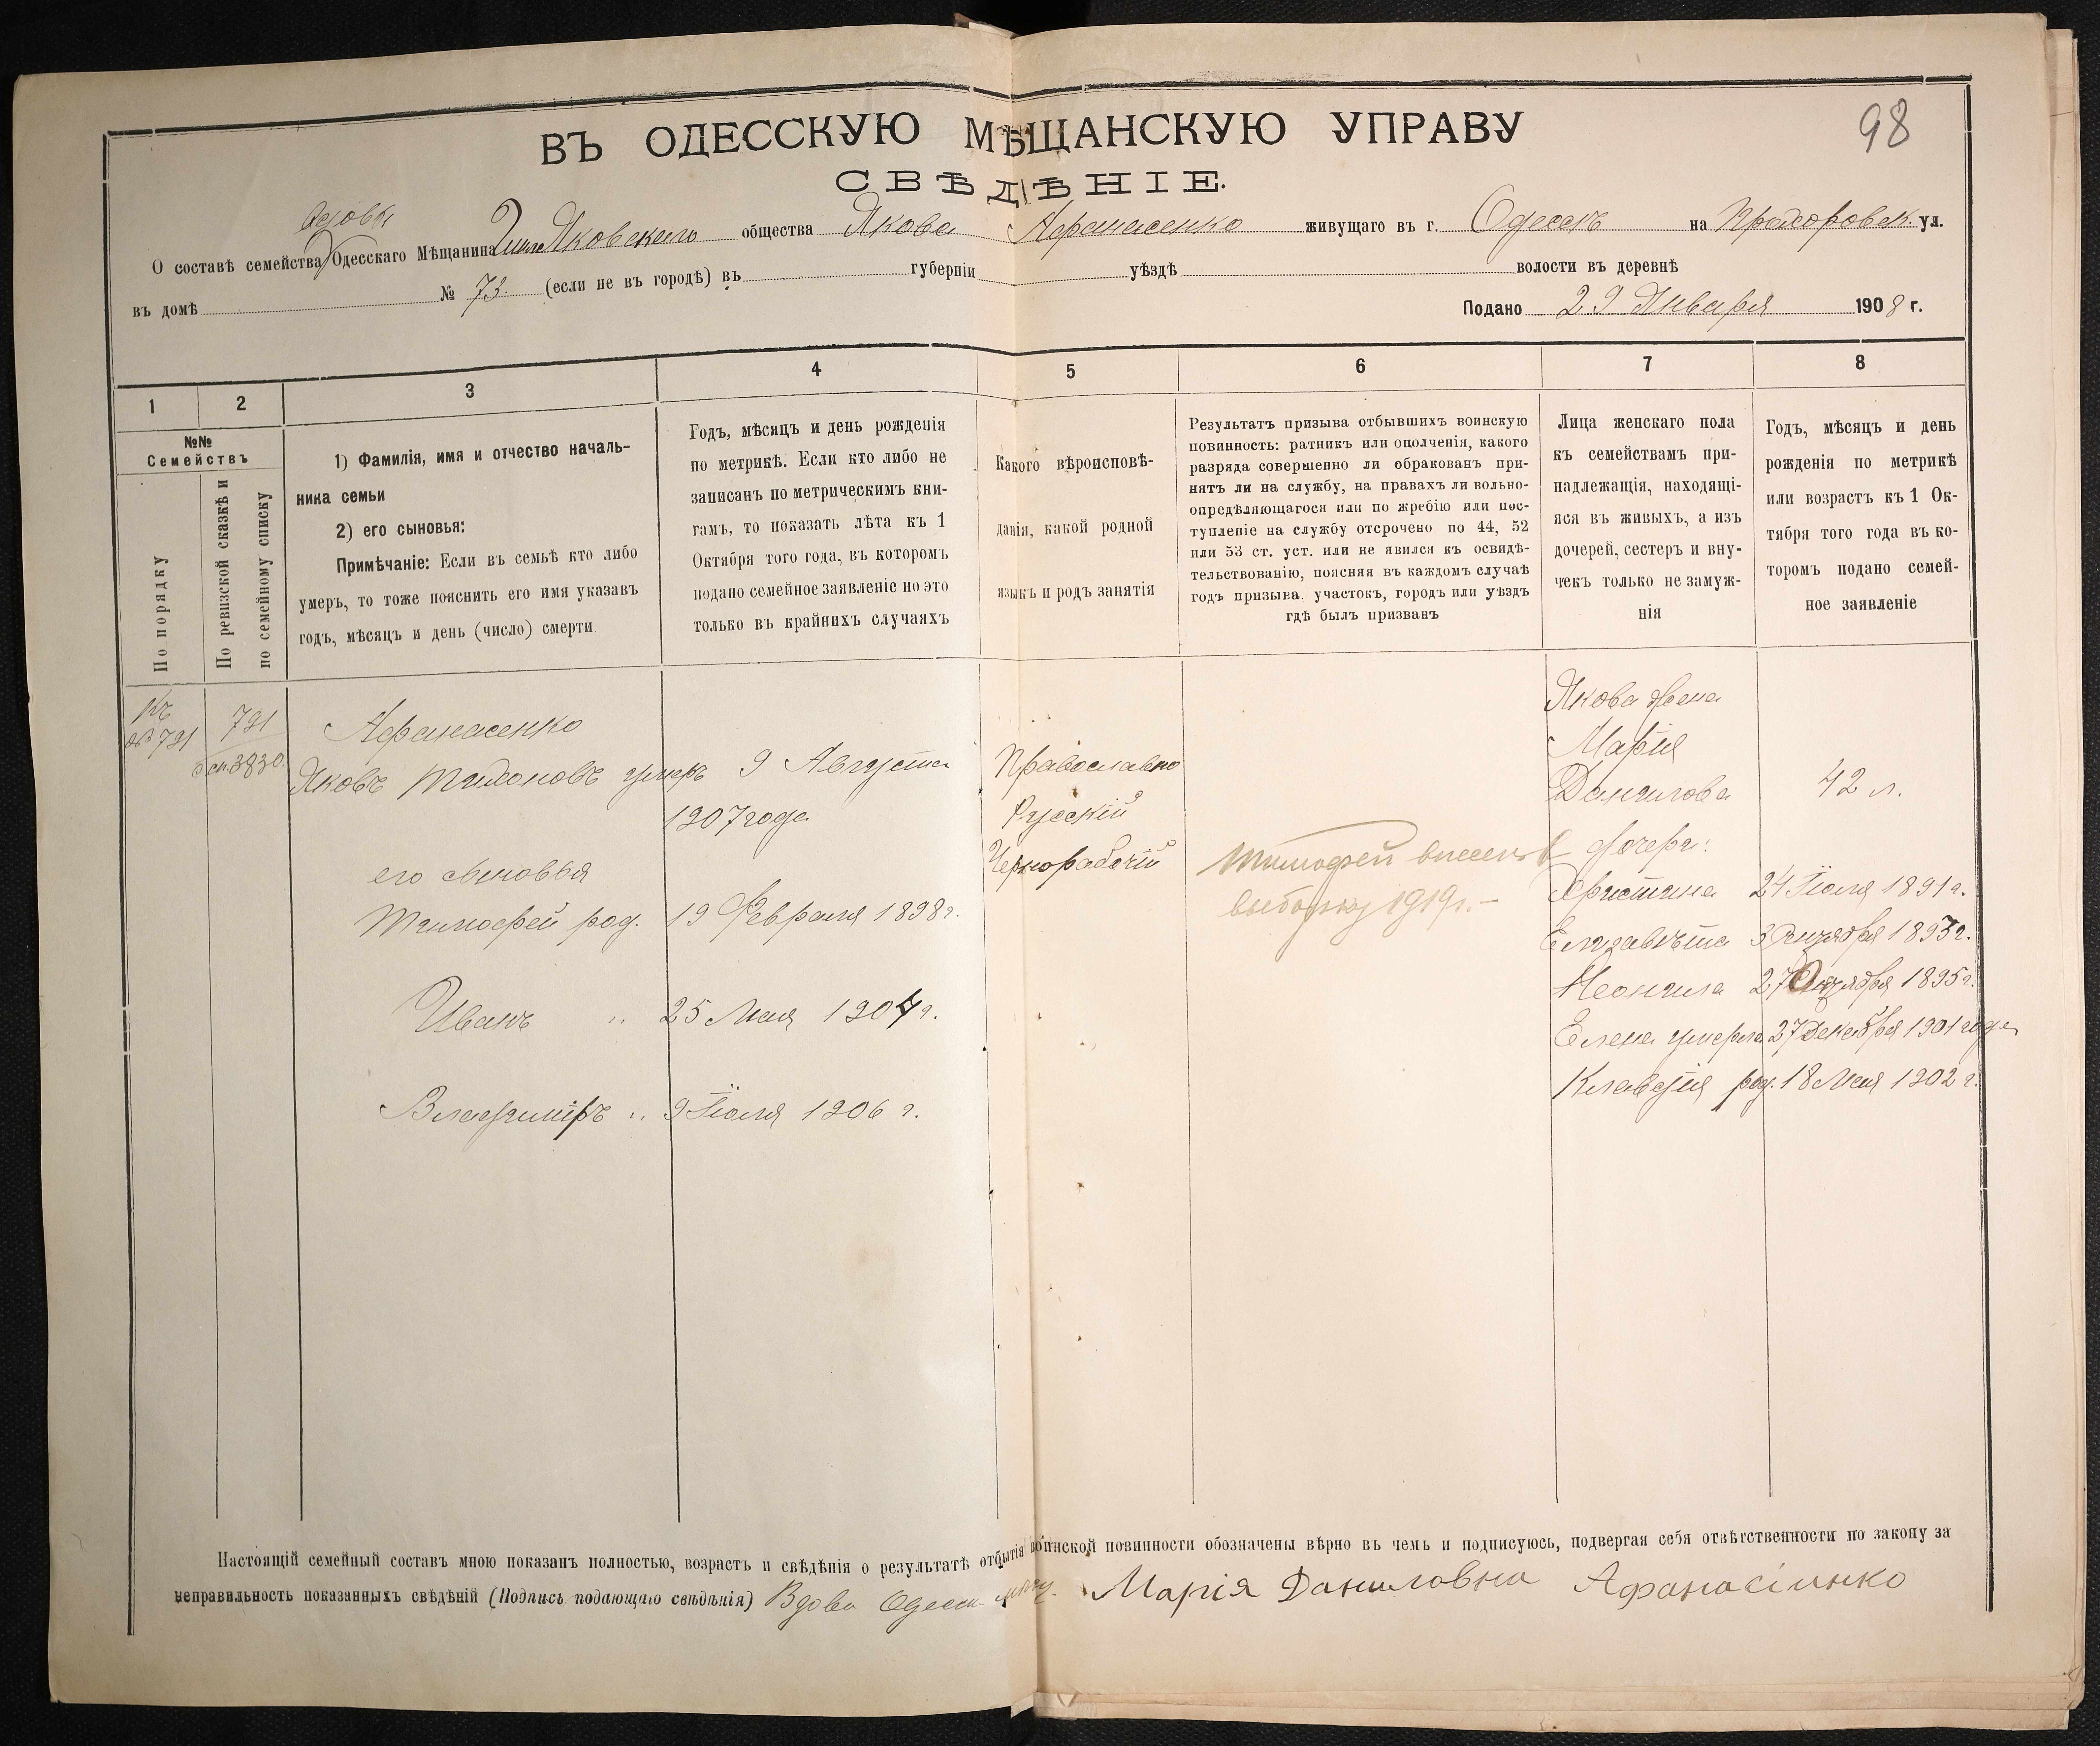 98
ВЪ ОДЕССКУЮ МѢЩАНСКУЮ УПРАВУ
СВѢДѢНІЕ.
вдовы
О составѣ семейства Одесскаго Мѣщанина общества Якова Афанасенко живущаго въ г. Одессѣ на Прохоровск. ул.
въ домѣ № 73. (если не въ городѣ) въ губерніи уѣздѣ волости въ деревнѣ
Подано 29 Января 1908 г.
1 2 3 4 5 6 7 8
№№
Семействъ
По порядку
По ревизской сказкѣ и
по семейному списку
1) Фамилія, имя и отчество началь-
ника семьи
2) его сыновья:
Примѣчаніе: Если въ семьѣ кто либо
умеръ, то тоже пояснить его имя указавъ
годъ, мѣсяцъ и день (число) смерти
Годъ, мѣсяцъ и день рожденія
по метрикѣ. Если кто либо не
записанъ по метрическимъ кни-
гамъ, то показать лѣта къ 1
Октября того года, въ которомъ
подано семейное заявленіе но это
только въ крайнихъ случаяхъ
Какого вѣроисповѣ-
данія, какой родной
языкъ и родъ занятія
Результатъ призыва отбывшихъ воинскую
повинность: ратникъ или ополченія, какого
разряда совершенно ли обракованъ при-
нятъ ли на службу, на правахъ ли вольно-
опредѣляющагося или по жребію или пос-
тупленіе на службу отсрочено по 44, 52
или 53 ст. уст. или не явился къ освидѣ-
тельствованію, поясняя въ каждомъ случаѣ
годъ призыва. участокъ, городъ или уѣздъ
гдѣ былъ призванъ
Лица женскаго пола
къ семействамъ при-
надлежащія, находящі-
яся въ живыхъ, а изъ
дочерей, сестеръ и вну-
чекъ только незамуж-
нія
Годъ, мѣсяцъ и день
рожденія по метрикѣ
или возрастъ къ 1 Ок-
тября того года въ ко-
торомъ подано семей-
ное заявленіе
Къ
791
791
3830.
Афанасенко
Яковъ Тихоновъ умеръ 9 Августа
1907 года
его сыновья
Тимофей род. 19 Февраля 1898 г.
Иванъ " 25 Мая 1904 г.
Владиміръ " 9 Іюля 1906 г.
Православно
Русскій
Чернорабочій
Тимофей внесенъ в
выборку 1919 г. –
Якова жена
Марія
Данилова 42 л.
дочери:
Христина 24 Іюля 1891 г.
Елизавѣта 3 1893 г.
Неонила 27 Октября 1895 г.
Елена умерла 27 Декабря 1901 года
Клавдія род. 18 Мая 1902 г.
Настоящій семейный составъ мною показанъ полностью, возрастъ и свѣдѣнія о результатѣ отбытія воинской повинности обозначены вѣрно въ чемъ и подписуюсь, подвергая себя отвѣтственности по закону за
неправильность показанныхъ свѣдѣній (Подпись подающаго свѣдѣнія) Вдова Одесск. мѣщ. Марія Даниловна Афанасіинко